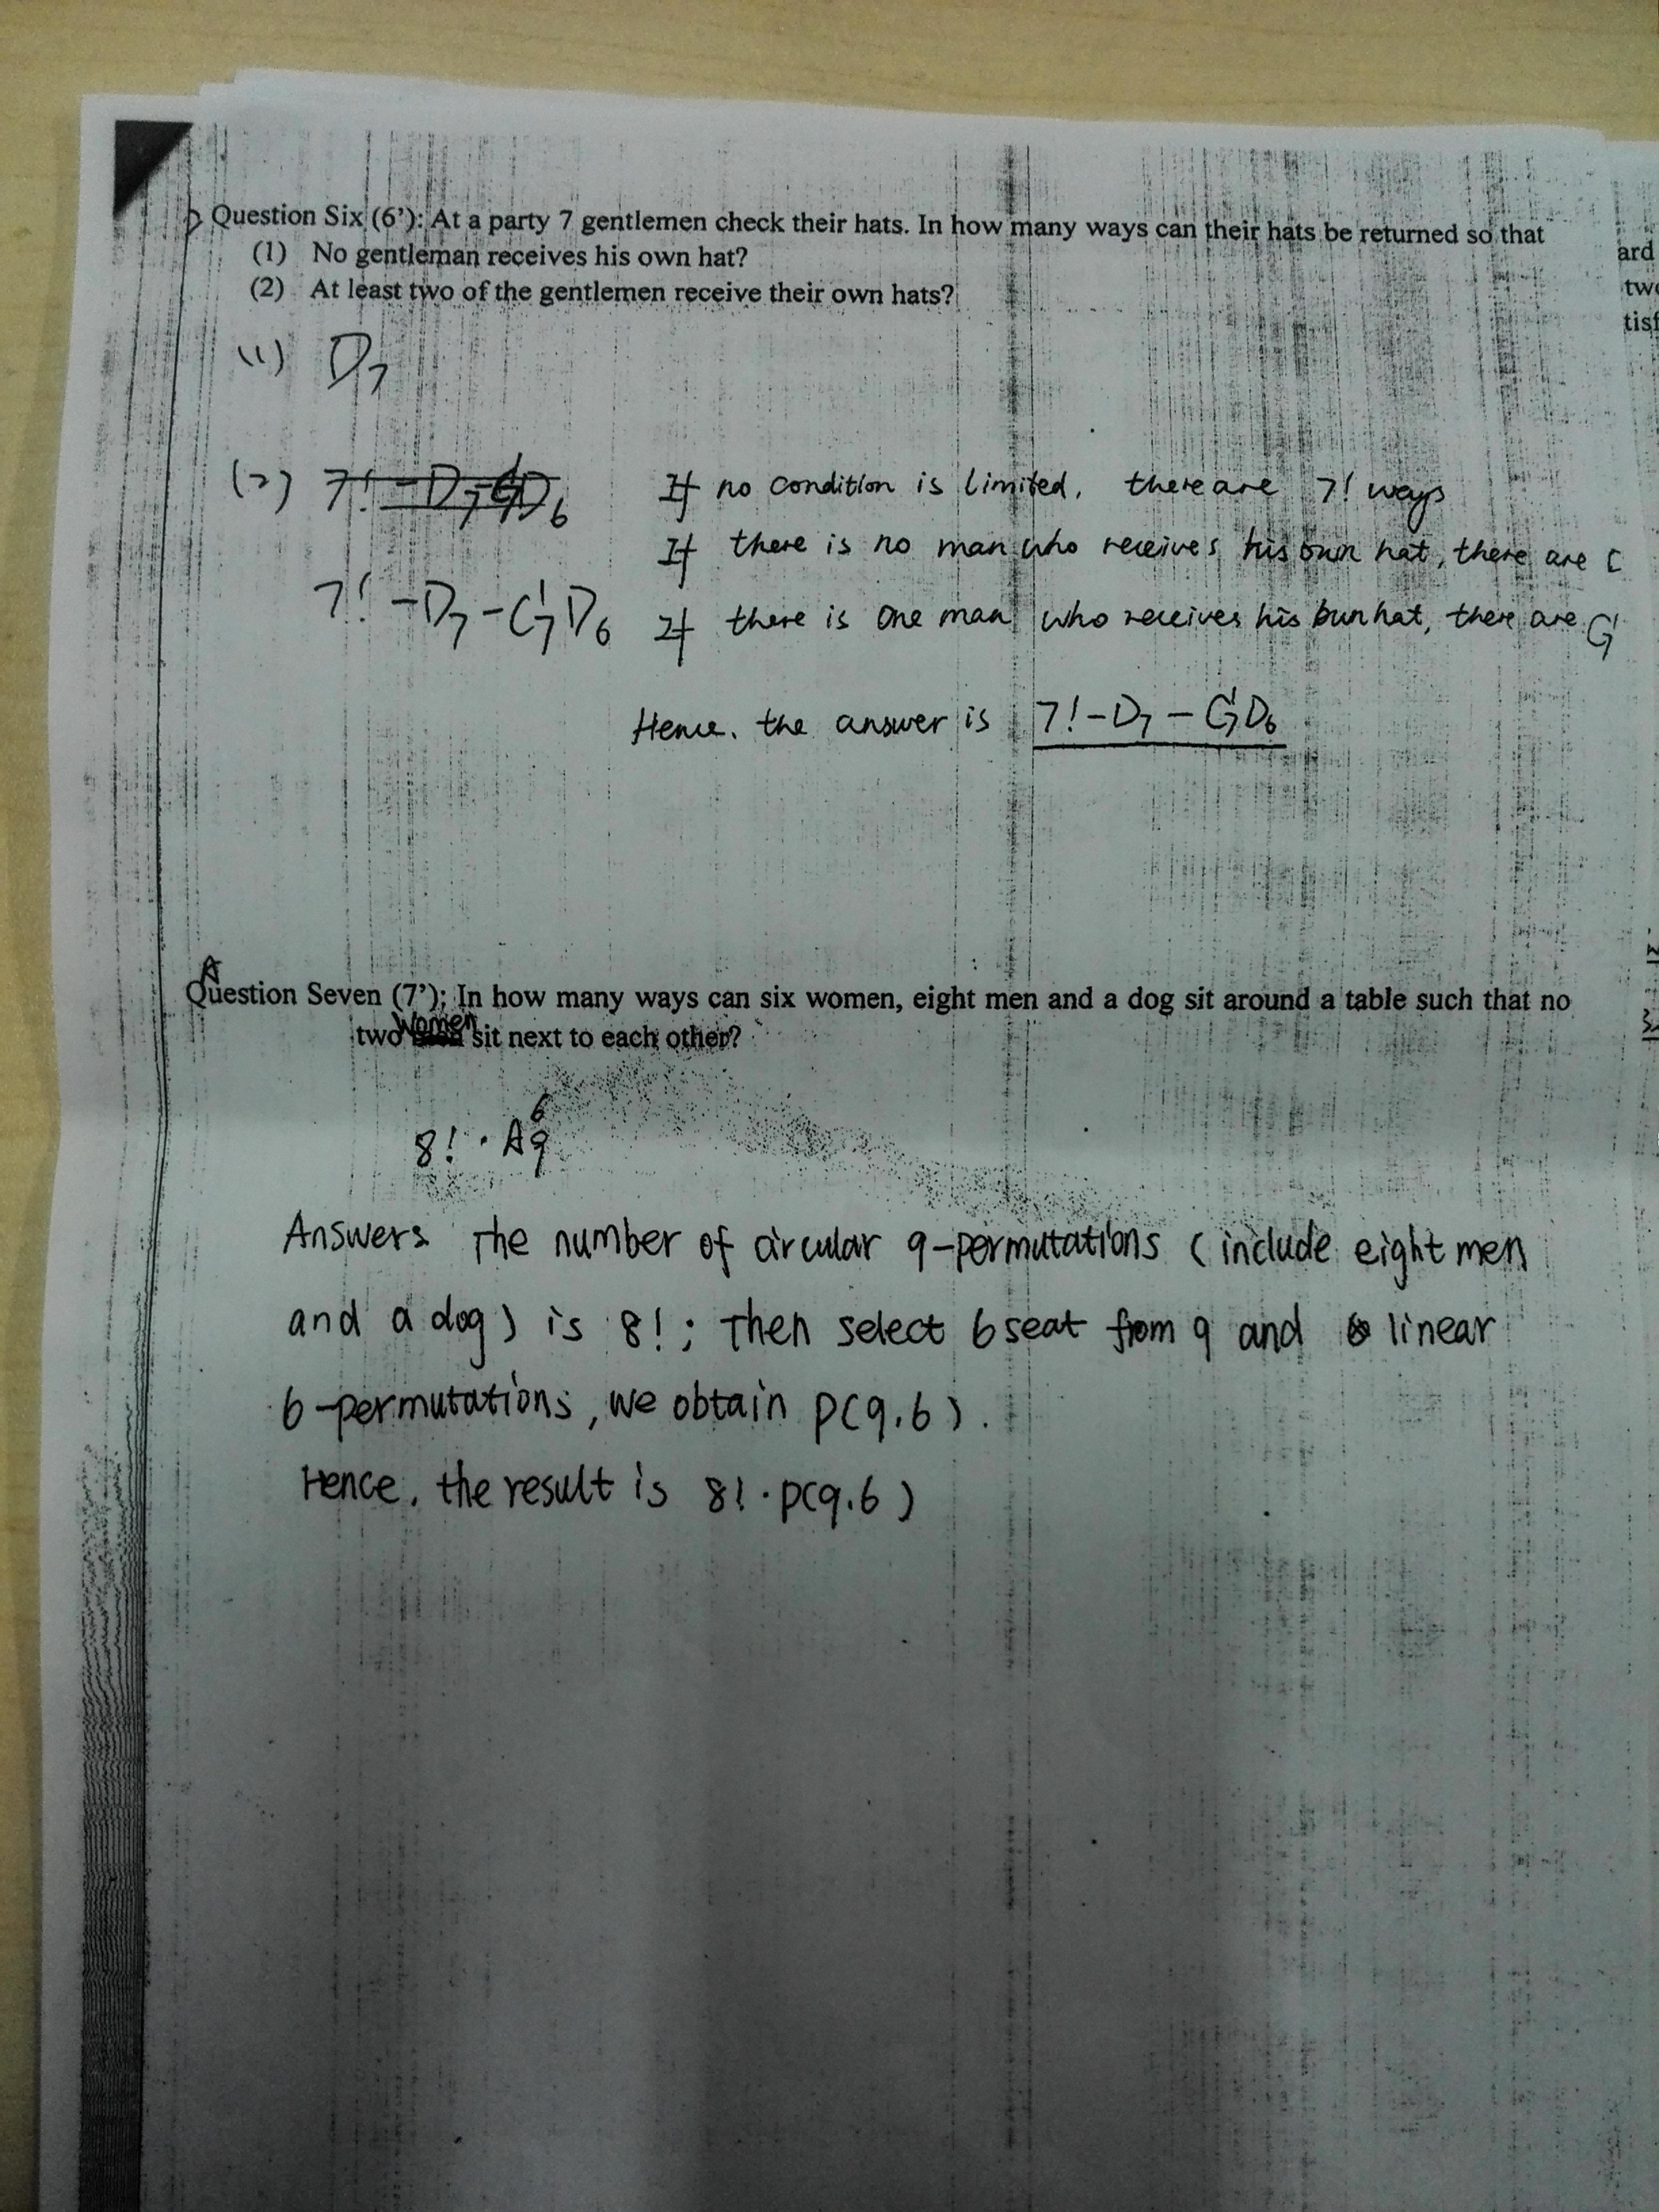 Question Six (6'): At a party 7 gentlemen check their hats. In how many ways can their hats be returned so that
(1) No gentleman receives his own hat?
(2) At least two of the gentlemen receive their own hats?
ard
two
tisf
(1) D₇
(2) 7! - D₇
7! - D₇ - C₇¹ D₆
If no condition is limited, there are 7! ways
If there is no man who receives his own hat, there are
If there is one man who receives his own hat, there are C₇¹
Hence, the answer is 7! - D₇ - C₇¹ D₆
A
Question Seven (7'): In how many ways can six women, eight men and a dog sit around a table such that no
two women sit next to each other?
8! · A₉⁶
Answers The number of circular 9-permutations (include eight men
and a dog) is 8!; Then select 6 seat from 9 and linear
6-permutations, we obtain P(9,6).
Hence, the result is 8! · P(9,6)